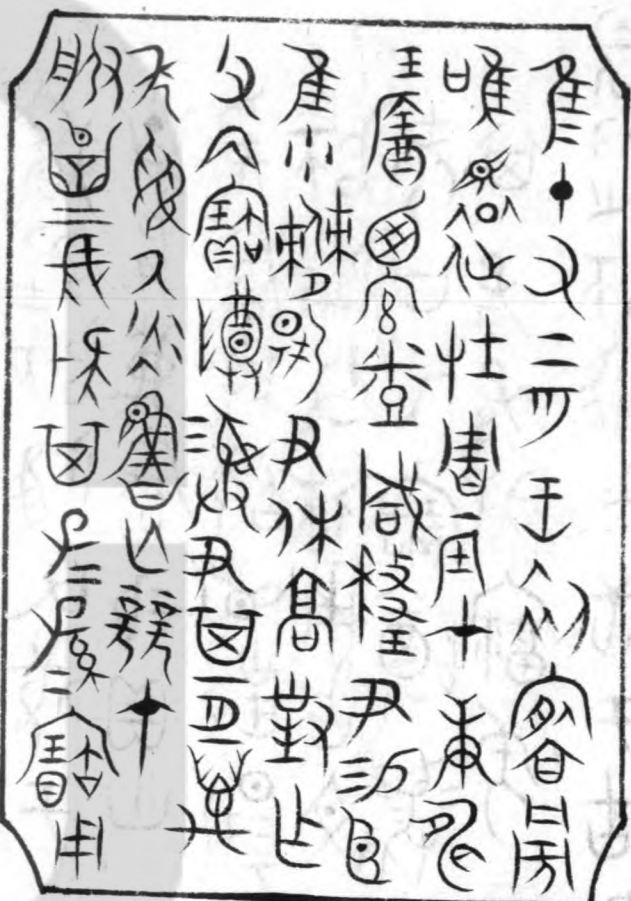 隹十又二月王初旁
唯還在周辰才庚申
王酓西宮烝咸釐尹易臣
隹小僰揚尹休高對乍
父丙寶尊彝尹其亙萬
年受氒永魯亡競才
服㠱長疑其子子孫孫寶用